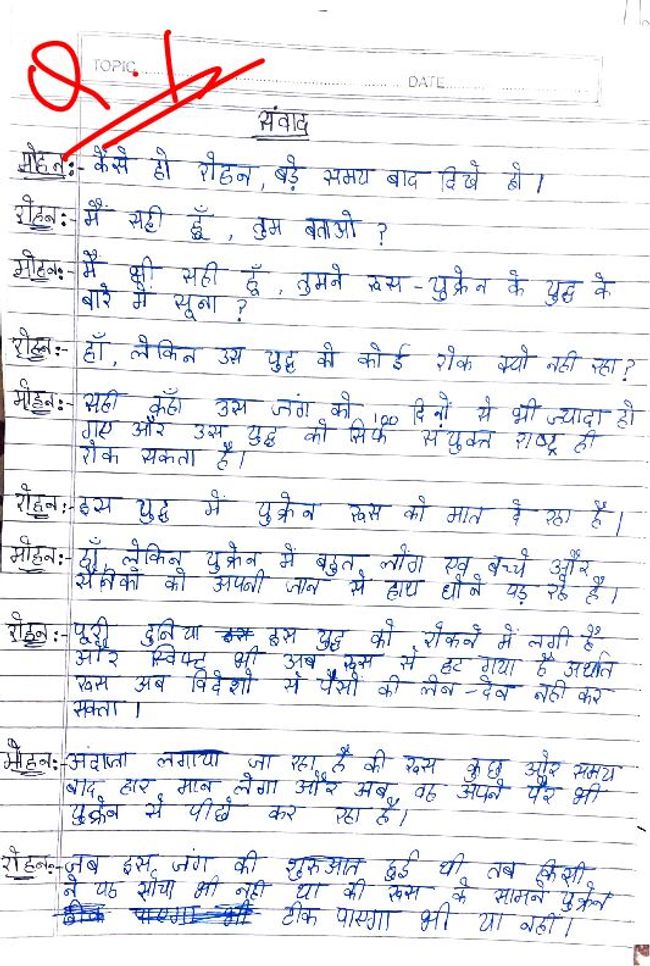 Q.1
TOPIC
DATE
संवाद
मोहन:- कैसे हो रोहन, बड़े समय बाद दिखे हो।
रोहन:- मैं सही हूँ, तुम बताओ?
मोहन:- मैं भी सही हूँ, तुमने रूस-युक्रेन के युद्ध के
बारे में सूना?
रोहन:- हाँ, लेकिन उस युद्ध को कोई रोक क्यो नही रहा?
मोहन:- सही कहाँ उस जंग को 100 दिनों से भी ज्यादा हो
गए और उस युद्ध को सिर्फ संयुक्त राष्ट्र ही
रोक सकता है।
रोहन:- इस युद्ध में युक्रेन रूस को मात दे रहा है।
मोहन:- हाँ, लेकिन युक्रेन में बहुत लोंग एव बच्चे और
सैनिको को अपनी जान से हाथ धोने पड़ रहे है।
रोहन:- पूरी दुनिया इस युद्ध को रोकने में लगी है
और स्विफ्ट भी अब रूस से हट गया है अर्थात
रूस अब विदेशो से पैसों की लेन-देन नही कर
सकता।
मोहन:- अंदाजा लगाया जा रहा है की रूस कुछ और समय
बाद हार मान लेगा और अब वह अपने पैर भी
युक्रेन से पीछे कर रहा है।
रोहन:- जब इस जंग की शुरुआत हुई थी तब किसी
ने यह सोचा भी नही था की रूस के सामने युक्रेन
टीक पाएगा भी या नहीं।